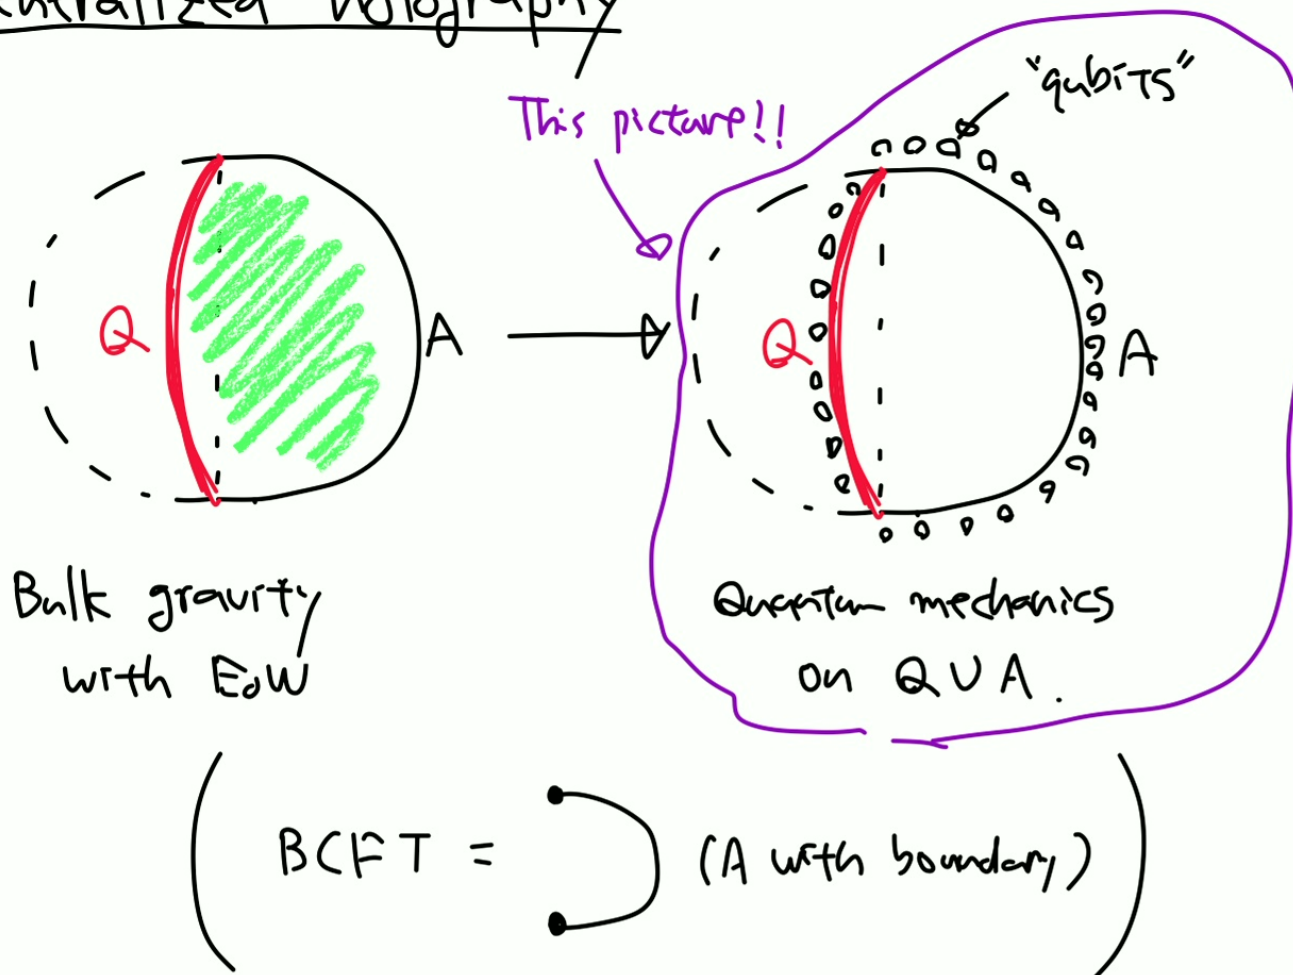 holography
This picture!!
"qubits"
Q
A
Q
A
Bulk gravity
with EoW
Quantum mechanics
on Q U A.
( BCFT = (A with boundary) )